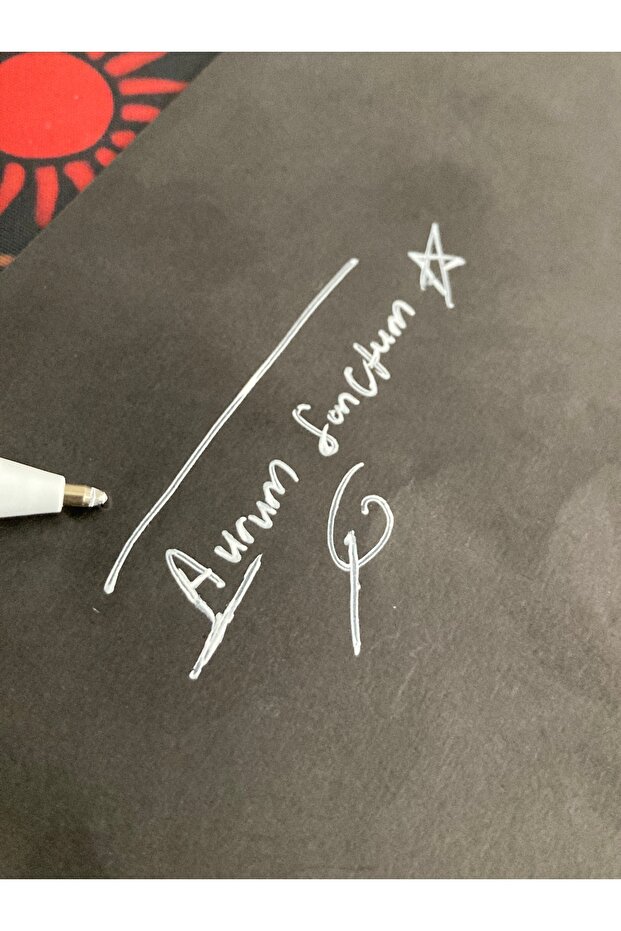 Aurum Sanctum